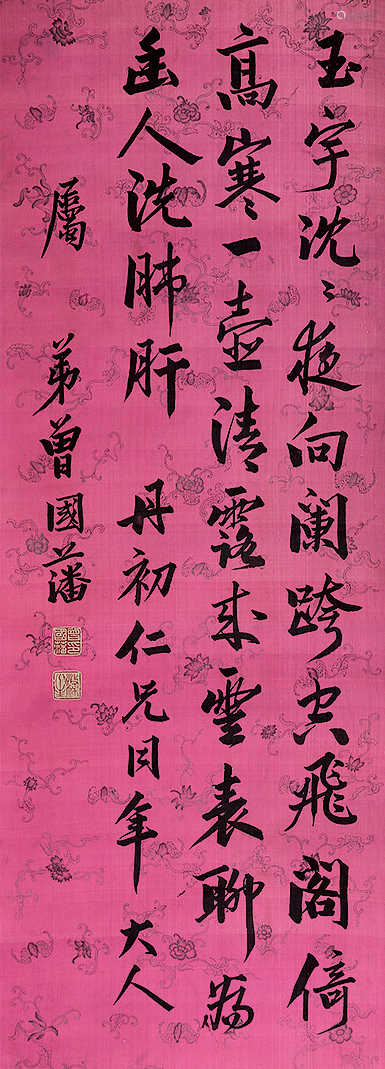 玉宇沈沈夜向闌跨空飛閣倚
高寒一壺清露來雲表聊為
幽人洗肺肝
丹初仁兄同年大人
屬
弟曾國藩